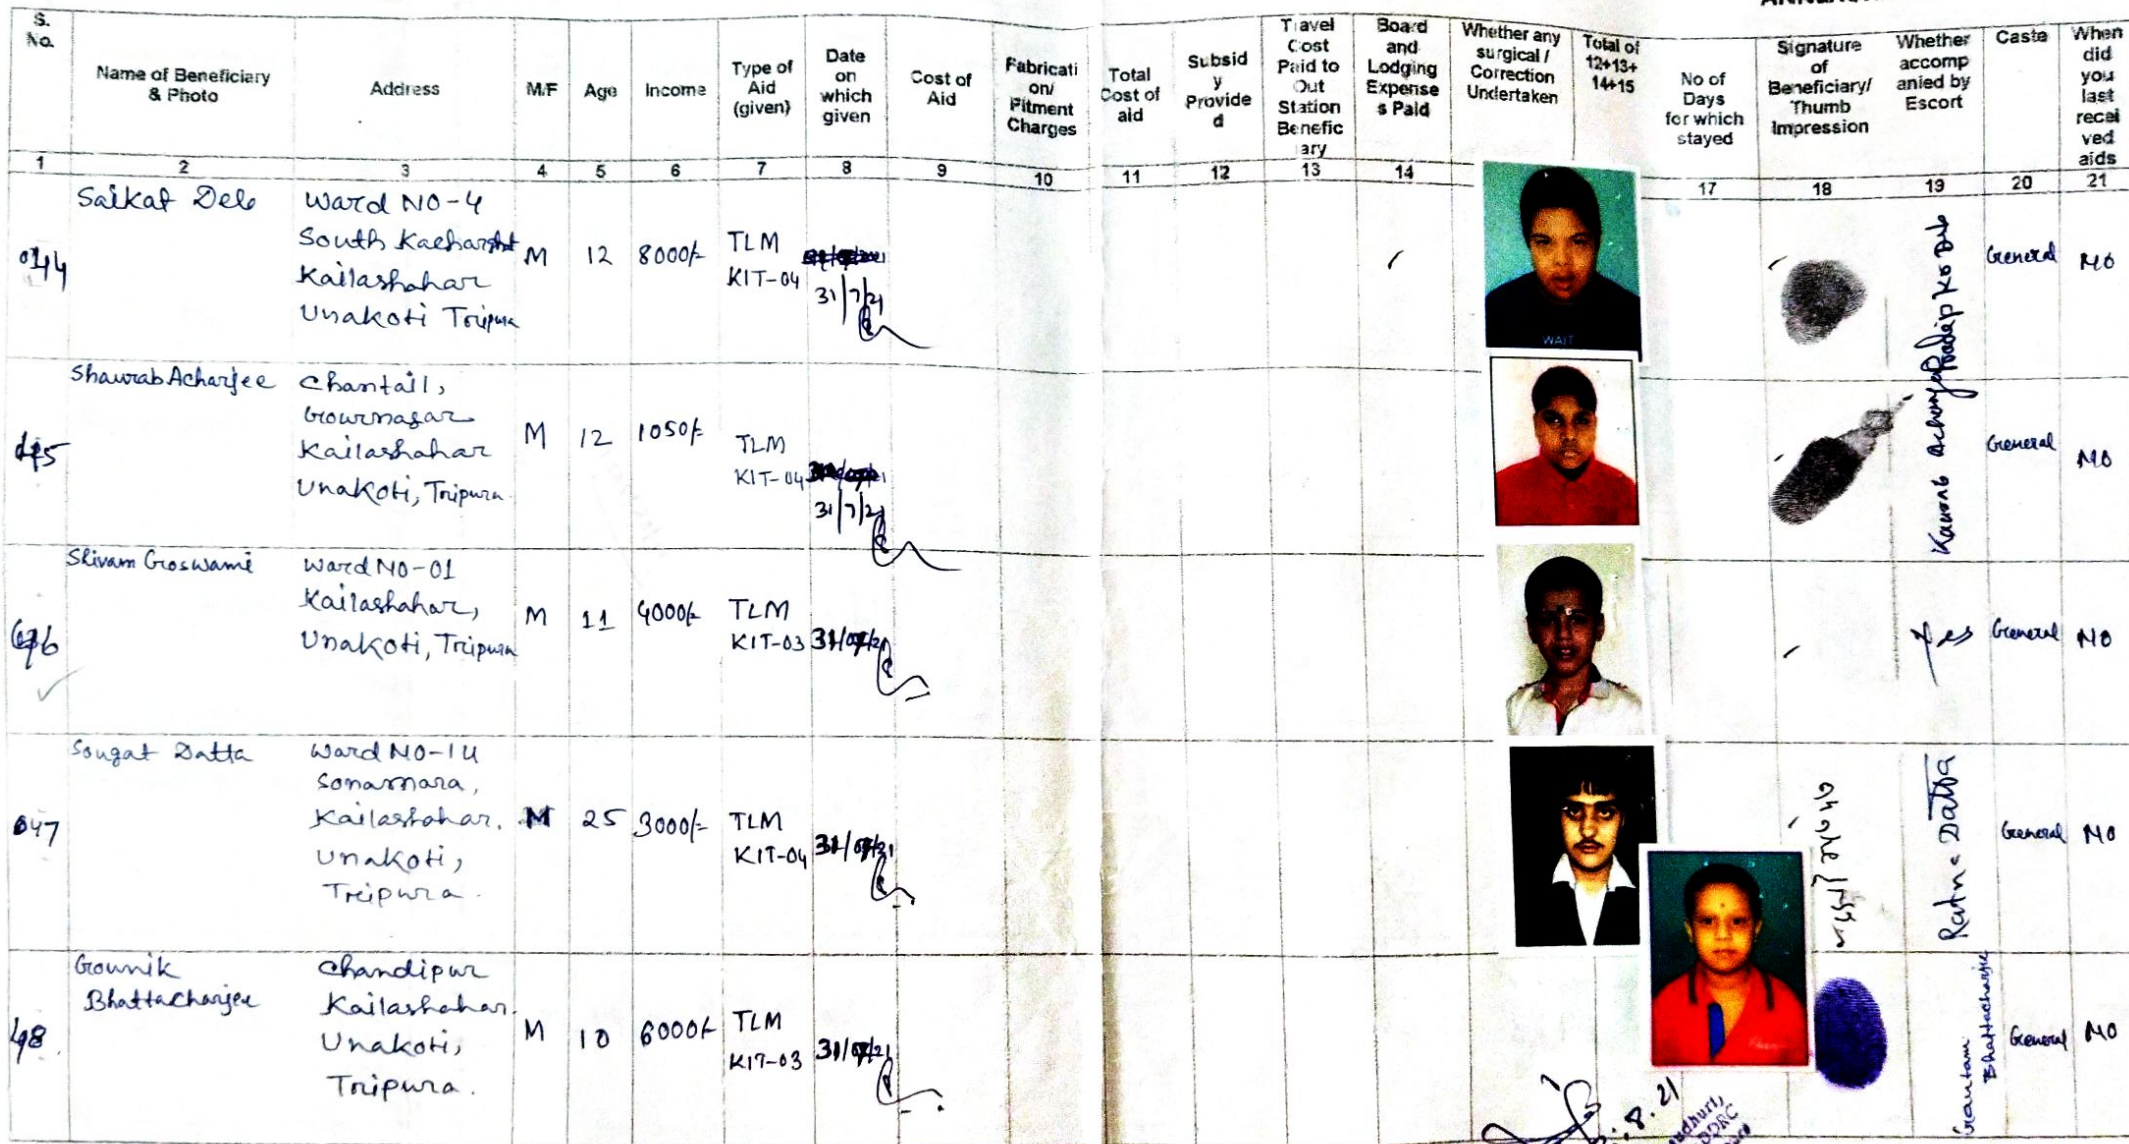 S. No.
Name of Beneficiary & Photo
Address
M/F
Age
Income
Type of Aid (given)
Date on which given
Cost of Aid
Fabricati on/ Fitment Charges
Total Cost of aid
Subsid y Provide d
Travel Cost Paid to Out Station Benefic ary
Board and Lodging Expense s Paid
Whether any surgical / Correction Undertaken
Total of 12+13+ 14+15
No of Days for which stayed
Signature of Beneficiary/ Thumb Impression
Whether accomp anied by Escort
Caste
When did you last recei ved aids
1 2 3 4 5 6 7 8 9 10 11 12 13 14 17 18 19 20 21
Saikat Deb
Ward NO-4
South
Kailashahar
Unakoti Tripura
M 12 8000/-
TLM
KIT-04
31/7/21
WAIT
General NO
Shaurab Acharjee
Chantail,
Gournagar
Kailashahar
Unakoti, Tripura.
M 12 1050/-
TLM
KIT-04
31/7/21
General NO
Shivam Goswami
Ward NO-01
Kailashahar,
Unakoti, Tripura
M 11 4000/-
TLM
KIT-03 31/07/21
Yes General NO
047
Sougat Datta
Ward NO-14
Sonamara,
Kailashahar.
Unakoti,
Treipura.
M 25 3000/-
TLM
KIT-04 31/07/21
Ratna Datta
General NO
48
Gounik
Bhattacharjee
Chandipur
Kailashahar.
Unakoti,
Tripura.
M 10 6000/-
TLM
KIT-03 31/07/21
Gautam
Bhattacharjee
General NO
8.21
DDRC